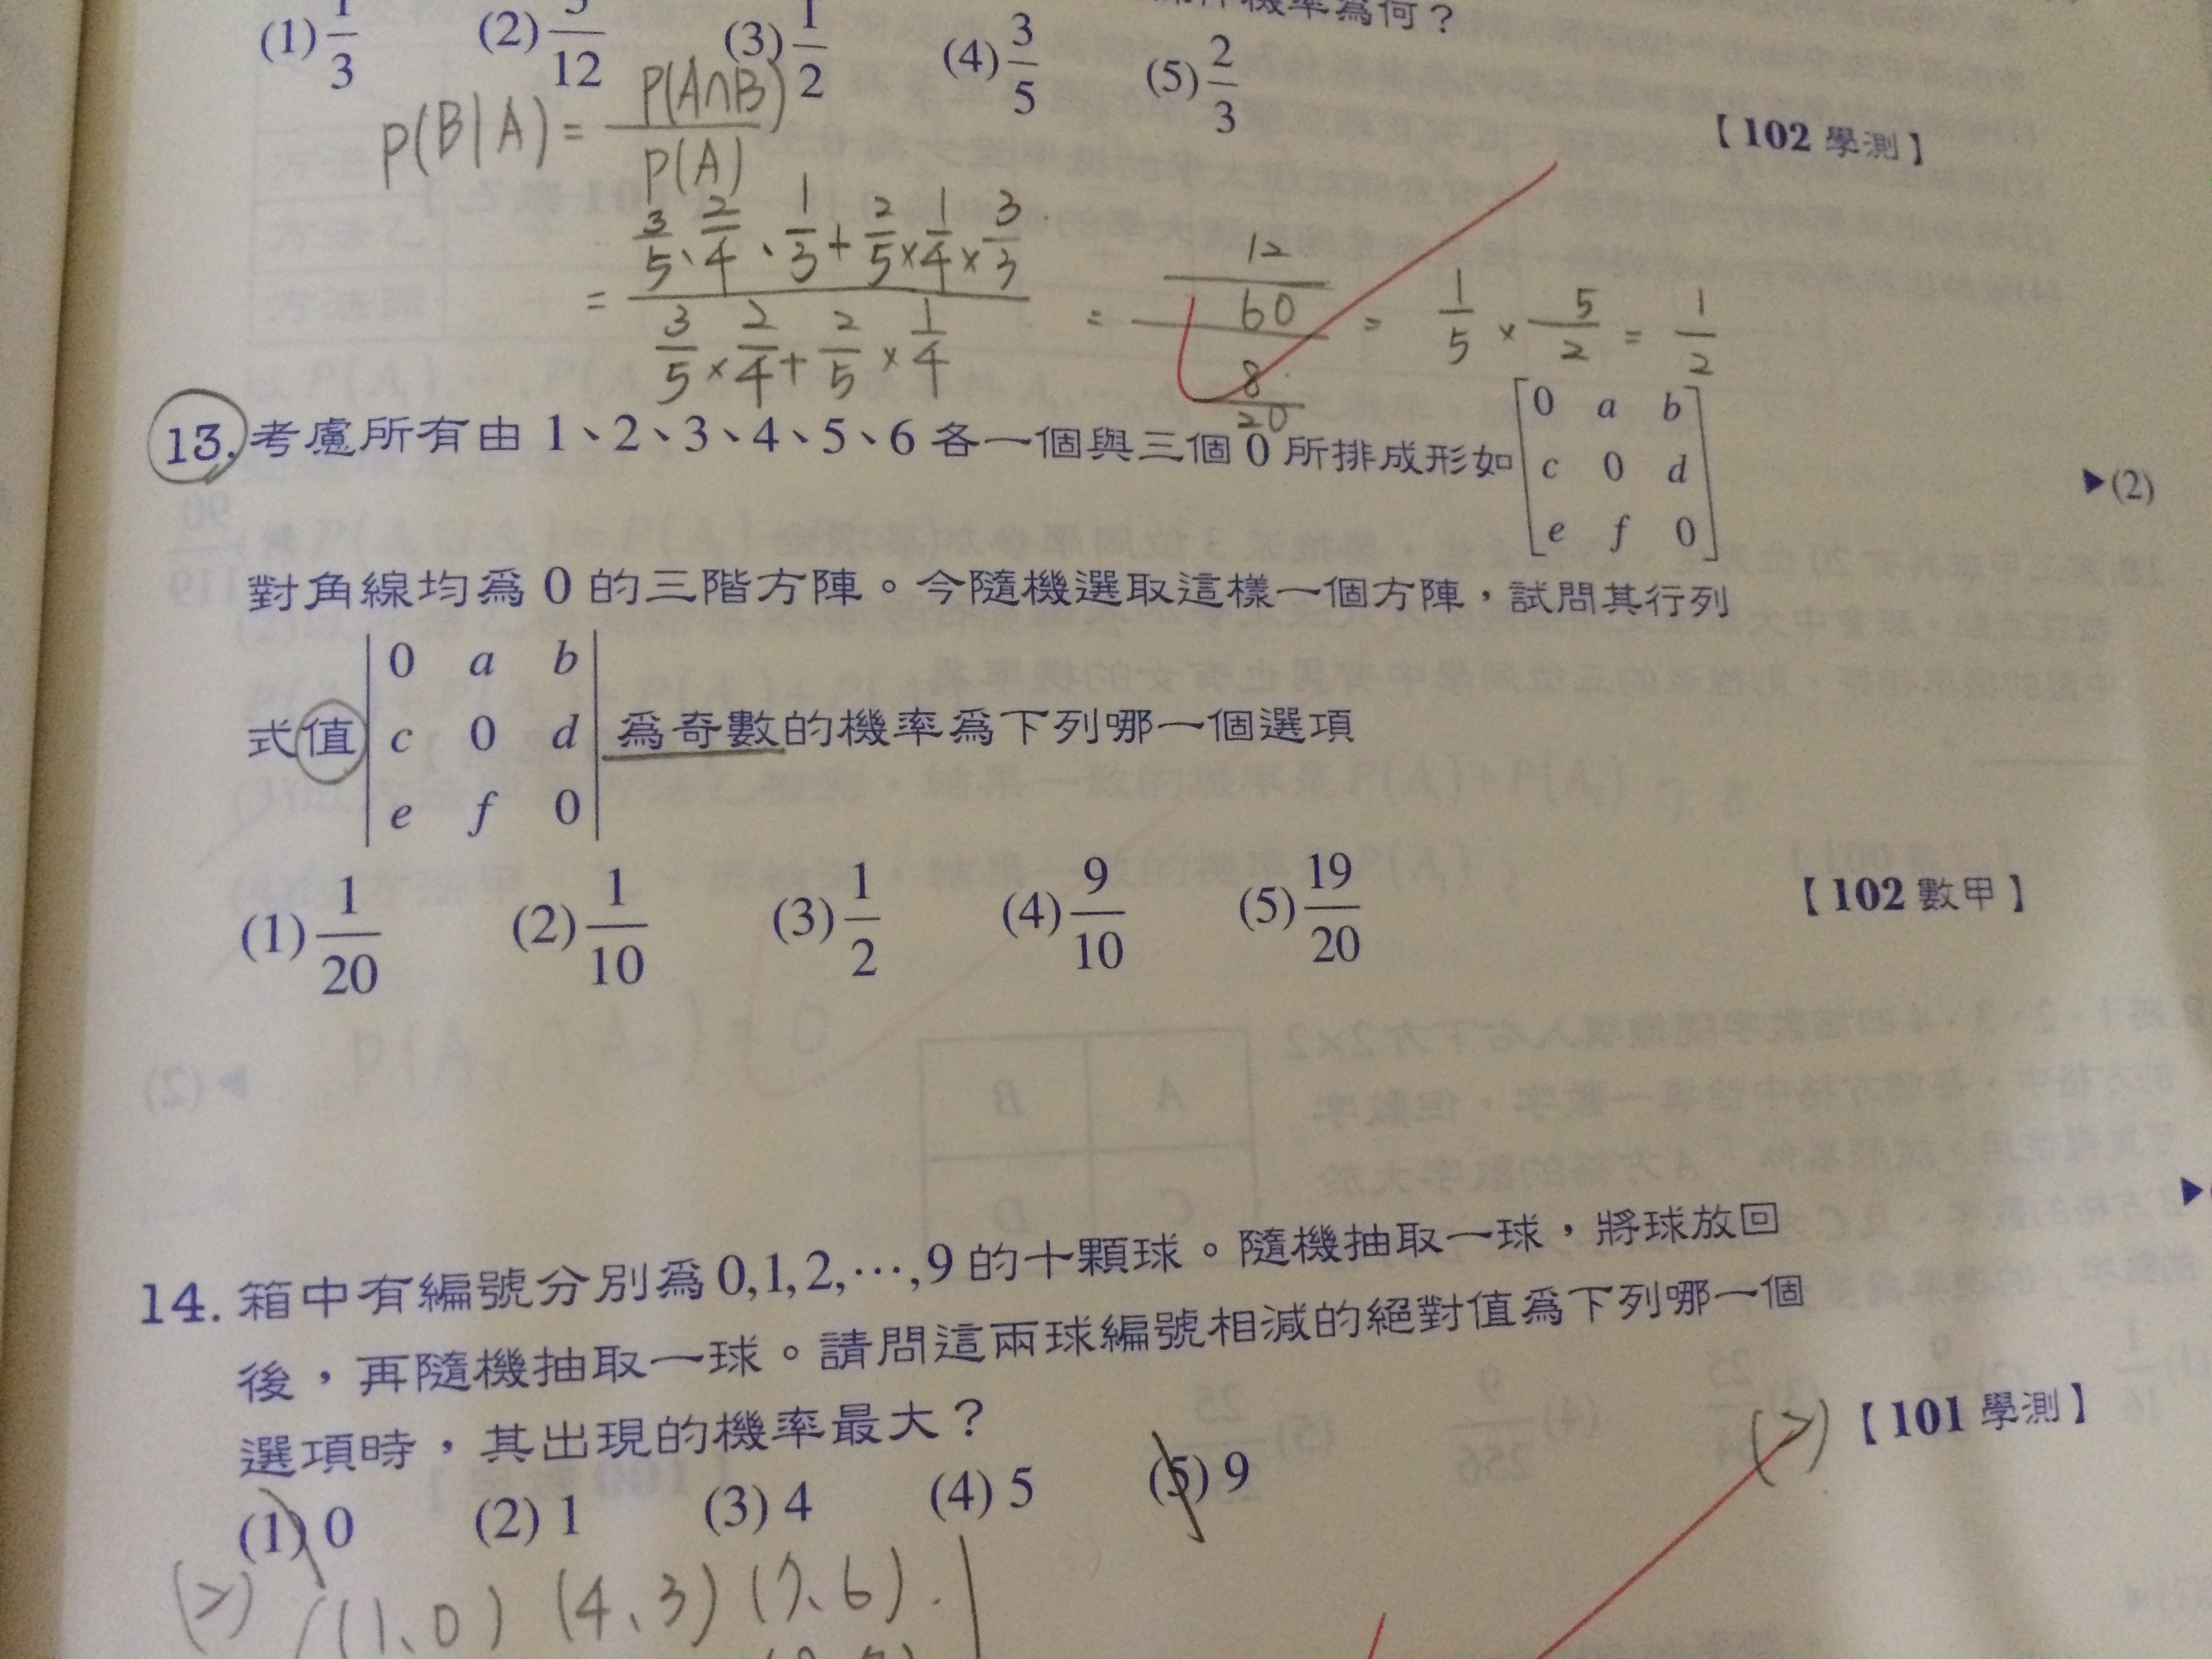 機率為何？
(1) 1/3 (2) /12 (3) 1/2 (4) 3/5 (5) 2/3
【102 學測】
P(B|A) = P(A∩B) / P(A)
= (3/5、2/4、1/3 + 2/5 × 1/4 × 3/3) / (3/5 × 2/4 + 2/5 × 1/4) = (12/60) / (8/20) = 1/5 × 5/2 = 1/2
13. 考慮所有由 1、2、3、4、5、6 各一個與三個 0 所排成形如
0 a b
c 0 d
e f 0
▶(2)
對角線均為 0 的三階方陣。今隨機選取這樣一個方陣，試問其行列
式值
0 a b
c 0 d
e f 0
為奇數的機率為下列哪一個選項
(1) 1/20 (2) 1/10 (3) 1/2 (4) 9/10 (5) 19/20
【102 數甲】
14. 箱中有編號分別為 0,1,2,⋯,9 的十顆球。隨機抽取一球，將球放回
後，再隨機抽取一球。請問這兩球編號相減的絕對值為下列哪一個
選項時，其出現的機率最大？
(2) 【101 學測】
(1) 0 (2) 1 (3) 4 (4) 5 (5) 9
(2) (1、0) (4、3) (7、6)